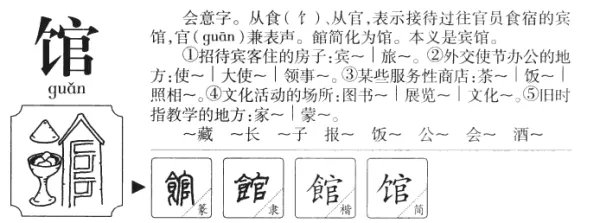 馆
guǎn
会意字。从食(饣)、从官,表示接待过往官员食宿的宾
馆,官(guān)兼表声。館简化为馆。本义是宾馆。
①招待宾客住的房子:宾～｜旅～。②外交使节办公的地
方:使～｜大使～｜领事～。③某些服务性商店:茶～｜饭～｜
照相～。④文化活动的场所:图书～｜展览～｜文化～。⑤旧时
指教学的地方:家～｜蒙～。
～藏 ～长 ～子 报～ 饭～ 公～ 会～ 酒～
館 篆
館 隶
館 楷
馆 简